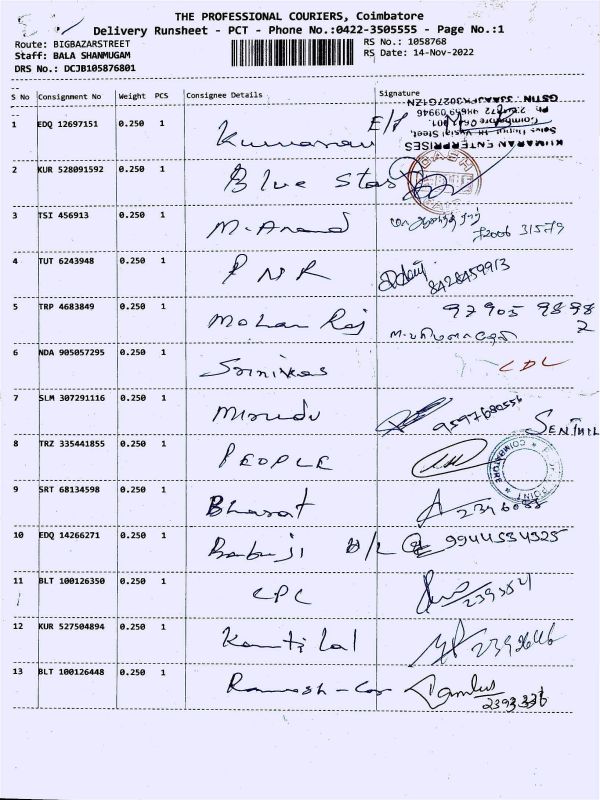 THE PROFESSIONAL COURIERS, Coimbatore
Delivery Runsheet - PCT - Phone No.:0422-3505555 - Page No.:1
Route: BIGBAZARSTREET RS No.: 1058768
Staff: BALA SHANMUGAM RS Date: 14-Nov-2022
DRS No.: DCJB105876801
S No Consignment No Weight PCS Consignee Details Signature
KUMARAN ENTERPRISES
1 EDQ 12697151 0.250 1 Kumaran E/P
2 KUR 528091592 0.250 1 Blue Star
3 TSI 456913 0.250 1 M. Anand
4 TUT 6243948 0.250 1 PNR 8428459913
5 TRP 4683849 0.250 1 Mohan Raj 97905 9898
2
6 NDA 905057295 0.250 1 Srinivas CDL
7 SLM 307291116 0.250 1 Mirudu SENTHIL
8 TRZ 335441855 0.250 1 PEOPLE COIMBATORE
9 SRT 68134598 0.250 1 Bharat
10 EDQ 14266271 0.250 1 Babuji 9944534525
11 BLT 100126350 0.250 1 CPC
12 KUR 527504894 0.250 1 Kantilal 2392646
13 BLT 100126448 0.250 1 Ramesh-
2393336